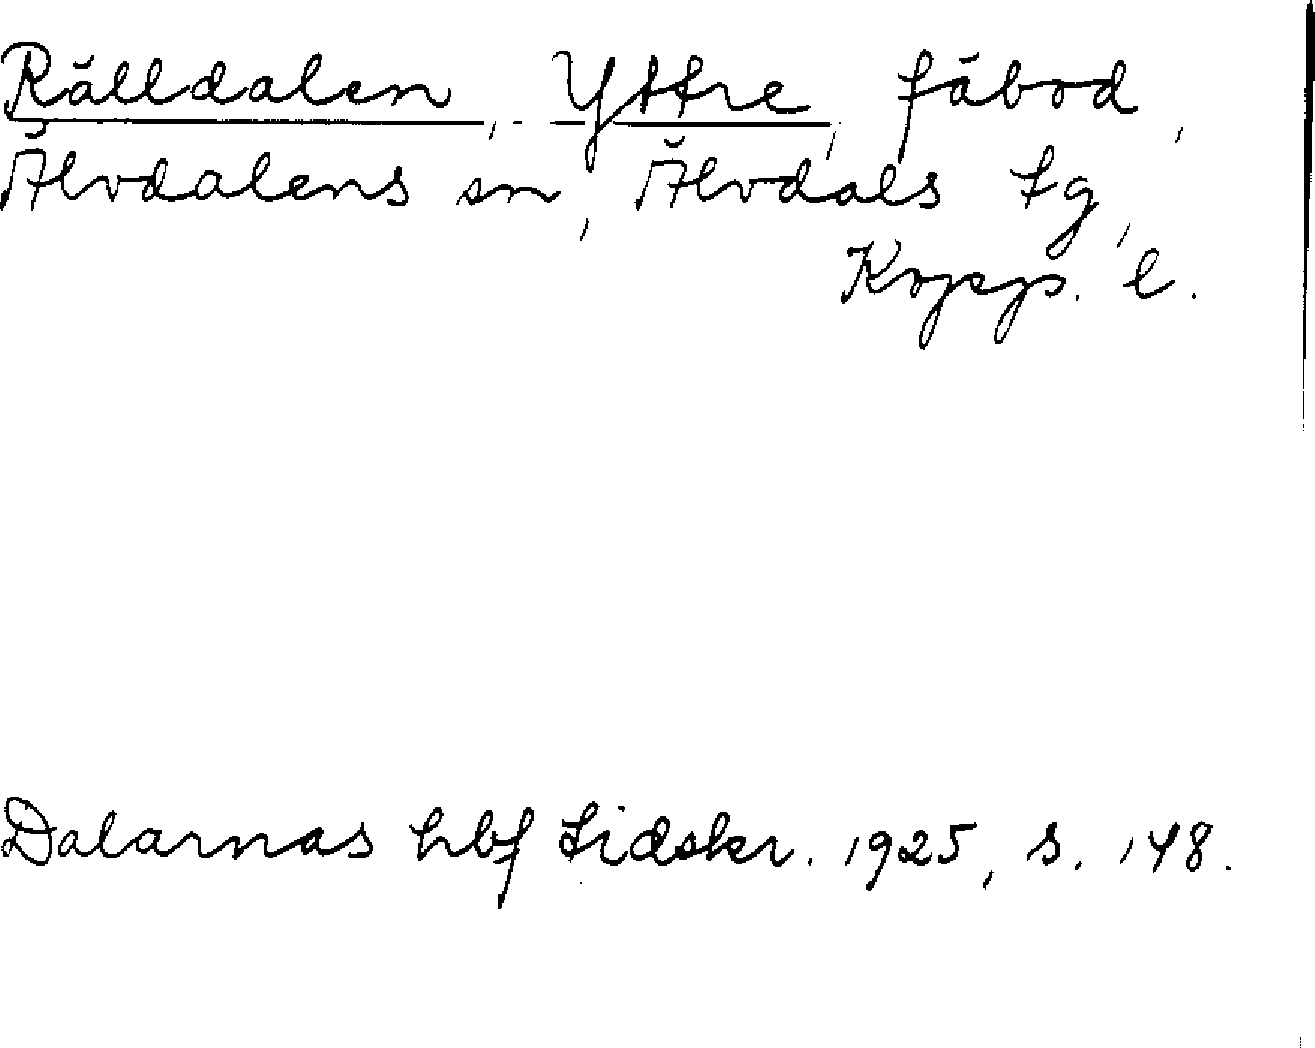 Rälldalen, Yttre, fäbod,
Älvdalens sn, Älvdals tg,
Kopp. l.
Dalarnas hbf tidskr. 1925, s. 148.